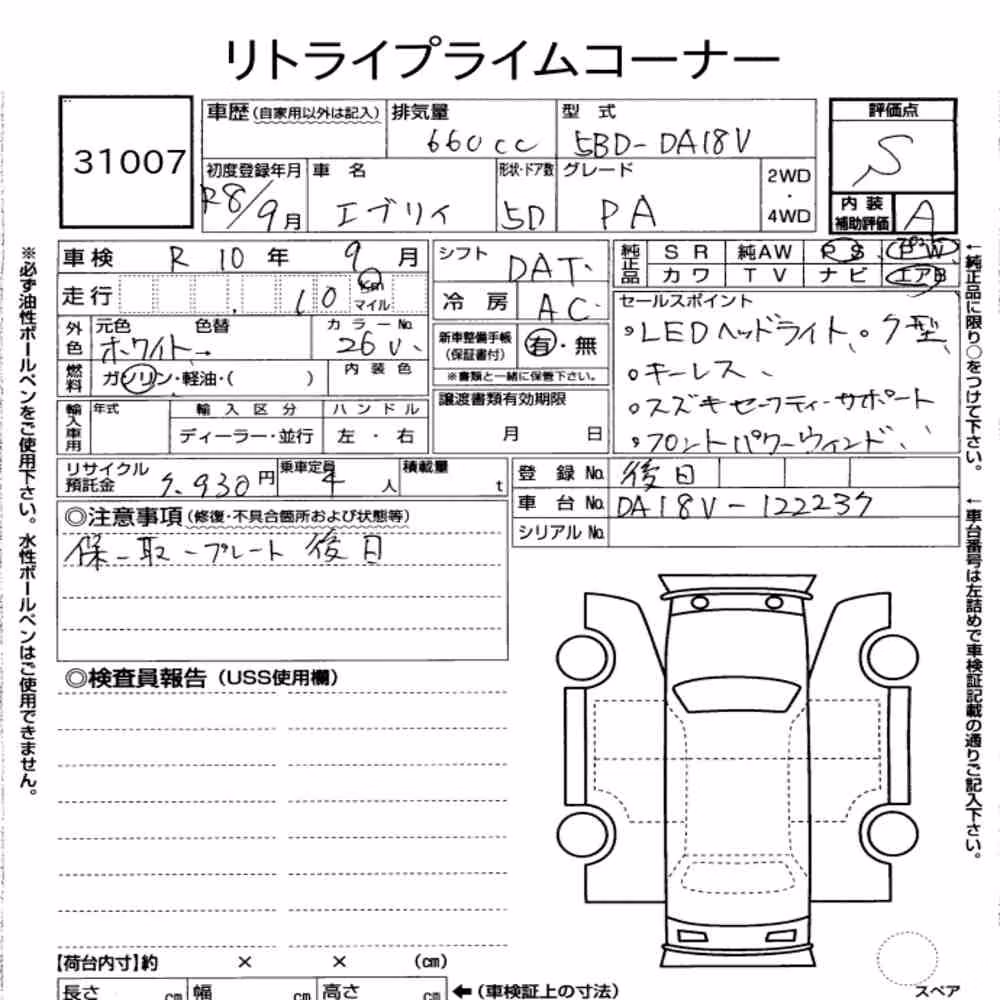 リトライプライムコーナー
31007
車歴(自家用以外は記入) 排気量 660cc 型式 5BD-DA18V 評価点 S
初度登録年月 R8/9月 車名 エブリィ 形状・ドア数 5D グレード PA 2WD・4WD 内装補助評価 A
車検 R 10 年 9 月 シフト DAT. 純正品 SR 純AW PS PW
走行 10 Km マイル 冷房 AC. カワ TV ナビ エアB
外色 元色 ホワイト 色替 → カラーNo. 26U. 新車整備手帳(保証書付) 有・無
※書類と一緒に保管下さい。
燃料 ガソリン・軽油・( ) 内装色
セールスポイント
•LEDヘッドライト、
•キーレス、
•スズキセーフティーサポート
•フロントパワーウィンド、
輸入車用 年式 輸入区分 ハンドル 譲渡書類有効期限
ディーラー・並行 左・右 月 日
リサイクル預託金 円 乗車定員 4 人 積載量 t
登録No. 後日
車台No. DA18V-122237
シリアルNo.
◎注意事項(修復・不具合箇所および状態等)
保-取-プレート 後日
◎検査員報告(USS使用欄)
【荷台内寸】約 × × (cm)
長さ cm 幅 cm 高さ cm ←(車検証上の寸法)
スペア
※必ず油性ボールペンをご使用下さい。水性ボールペンはご使用できません。
←純正品に限り○をつけて下さい。
←車台番号は左詰めで車検証記載の通りご記入下さい。